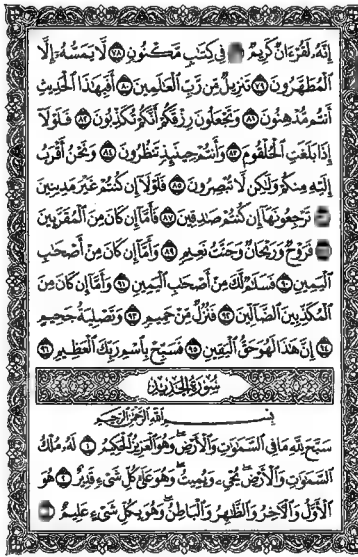 إِنَّهُۥ لَقُرْءَانٌ كَرِيمٌ فِى كِتَٰبٍ مَّكْنُونٍ ٧٨ لَّا يَمَسُّهُۥٓ إِلَّا
ٱلْمُطَهَّرُونَ ٧٩ تَنزِيلٌ مِّن رَّبِّ ٱلْعَٰلَمِينَ ٨٠ أَفَبِهَٰذَا ٱلْحَدِيثِ
أَنتُم مُّدْهِنُونَ ٨١ وَتَجْعَلُونَ رِزْقَكُمْ أَنَّكُمْ تُكَذِّبُونَ ٨٢ فَلَوْلَآ
إِذَا بَلَغَتِ ٱلْحُلْقُومَ ٨٣ وَأَنتُمْ حِينَئِذٍ تَنظُرُونَ ٨٤ وَنَحْنُ أَقْرَبُ
إِلَيْهِ مِنكُمْ وَلَٰكِن لَّا تُبْصِرُونَ ٨٥ فَلَوْلَآ إِن كُنتُمْ غَيْرَ مَدِينِينَ
تَرْجِعُونَهَآ إِن كُنتُمْ صَٰدِقِينَ ٨٧ فَأَمَّآ إِن كَانَ مِنَ ٱلْمُقَرَّبِينَ
فَرَوْحٌ وَرَيْحَانٌ وَجَنَّتُ نَعِيمٍ ٨٩ وَأَمَّآ إِن كَانَ مِنْ أَصْحَٰبِ
ٱلْيَمِينِ ٩٠ فَسَلَٰمٌ لَّكَ مِنْ أَصْحَٰبِ ٱلْيَمِينِ ٩١ وَأَمَّآ إِن كَانَ مِنَ
ٱلْمُكَذِّبِينَ ٱلضَّآلِّينَ ٩٢ فَنُزُلٌ مِّنْ حَمِيمٍ ٩٣ وَتَصْلِيَةُ جَحِيمٍ
٩٤ إِنَّ هَٰذَا لَهُوَ حَقُّ ٱلْيَقِينِ ٩٥ فَسَبِّحْ بِٱسْمِ رَبِّكَ ٱلْعَظِيمِ ٩٦
سُورَةُ الحَدِيد
بِسْمِ ٱللَّهِ ٱلرَّحْمَٰنِ ٱلرَّحِيمِ
سَبَّحَ لِلَّهِ مَا فِى ٱلسَّمَٰوَٰتِ وَٱلْأَرْضِ ۖ وَهُوَ ٱلْعَزِيزُ ٱلْحَكِيمُ ١ لَهُۥ مُلْكُ
ٱلسَّمَٰوَٰتِ وَٱلْأَرْضِ ۖ يُحْىِۦ وَيُمِيتُ ۖ وَهُوَ عَلَىٰ كُلِّ شَىْءٍ قَدِيرٌ ٢ هُوَ
ٱلْأَوَّلُ وَٱلْءَاخِرُ وَٱلظَّٰهِرُ وَٱلْبَاطِنُ ۖ وَهُوَ بِكُلِّ شَىْءٍ عَلِيمٌ